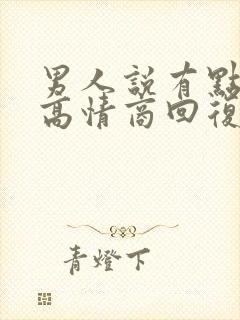 男人說有點
高情商回復
青燈下